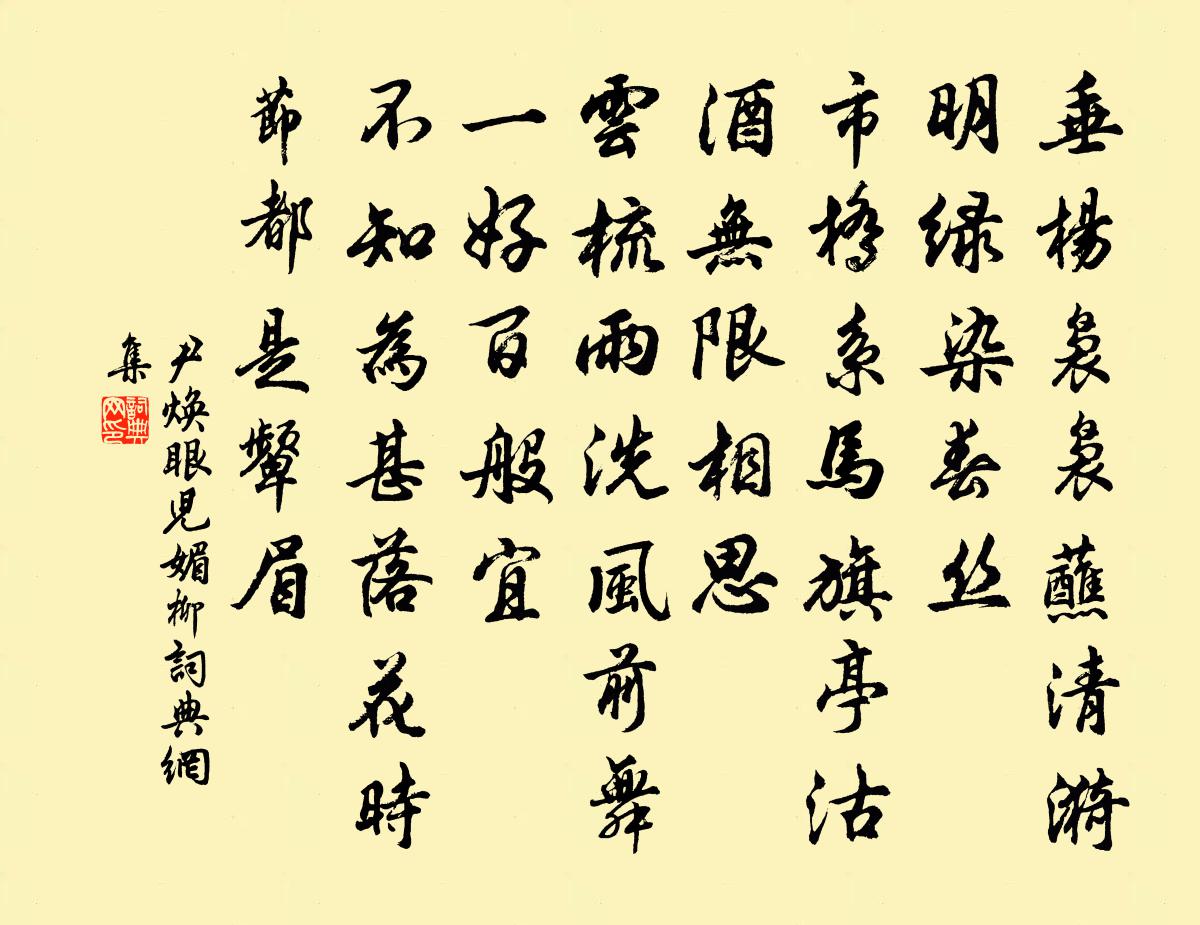 垂楊裊裊蘸清漪
明緑染春丝
市橋系馬旗亭沽
酒無限相思
雲梳雨洗風前舞
一好百般宜
不知為甚落花時
節都是顰眉
尹焕眼児媚柳詞典網
集
詞典網印